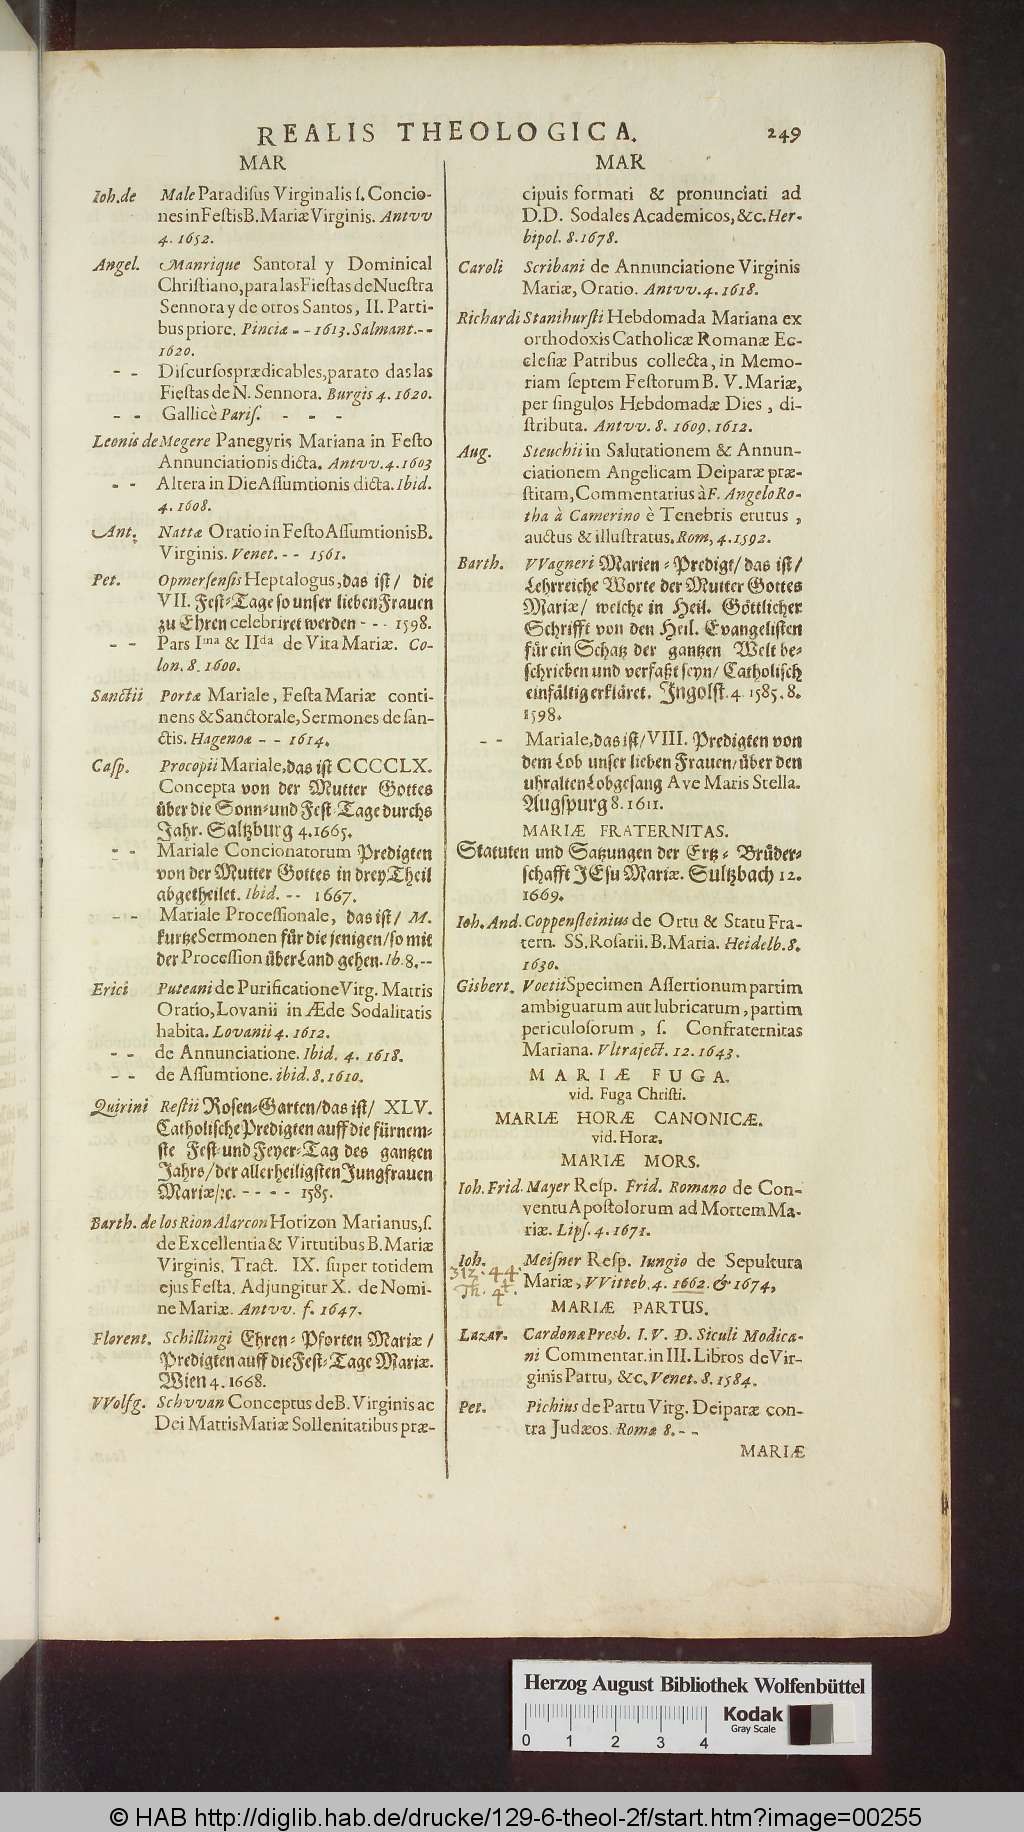 REALIS THEOLOGICA. 249
MAR
Ioh. de Male Paradisus Virginalis s. Concio-
nes in Festis B. Mariæ Virginis. Antvv
4. 1652.
Angel. Manrique Santoral y Dominical
Christiano, para las Fiestas de Nuestra
Sennora y de otros Santos, II. Parti-
bus priore. Pinciæ - - 1613. Salmant. - -
1620.
- - Discursos prædicables, parato das las
Fiestas de N. Sennora. Burgis 4. 1620.
- - Gallicè Paris. - - -
Leonis de Megere Panegyris Mariana in Festo
Annunciationis dicta. Antvv. 4. 1603
- - Altera in Die Assumtionis dicta. Ibid.
4. 1608.
Ant. Nattæ Oratio in Festo Assumtionis B.
Virginis. Venet. - - 1561.
Pet. Opmersensis Heptalogus, das ist/ die
VII. Fest-Tage so unser lieben Frauen
zu Ehren celebriret werden - - - 1598.
- - Pars Ima & IIda de Vita Mariæ. Co-
lon. 8. 1600.
Sanctii Portæ Mariale, Festa Mariæ conti-
nens & Sanctorale, Sermones de san-
ctis. Hagenoæ - - 1614.
Casp. Procopii Mariale, das ist CCCCLX.
Concepta von der Mutter Gottes
über die Sonn- und Fest-Tage durchs
Jahr. Saltzburg 4. 1665.
- - Mariale Concionatorum Predigten
von der Mutter Gottes in drey Theil
abgetheilet. Ibid. - - 1667.
- - Mariale Processionale, das ist/ M.
kurtze Sermonen für die jenigen/ so mit
der Procession über Land gehen. Ib. 8. - -
Erici Puteani de Purificatione Virg. Matris
Oratio, Lovanii in Æde Sodalitatis
habita. Lovanii 4. 1612.
- - de Annunciatione. Ibid. 4. 1618.
- - de Assumtione. ibid. 8. 1610.
Quirini Restii Rosen-Garten/ das ist/ XLV.
Catholische Predigten auff die fürnem-
ste Fest- und Feyer-Tag des gantzen
Jahrs/ der allerheiligsten Jungfrauen
Mariæ/ꝛc. - - - - 1585.
Barth. de los Rion Alarcon Horizon Marianus, s.
de Excellentia & Virtutibus B. Mariæ
Virginis. Tract. IX. super totidem
ejus Festa. Adjungitur X. de Nomi-
ne Mariæ. Antvv. f. 1647.
Florent. Schillingi Ehren-Pforten Mariæ/
Predigten auff die Fest-Tage Mariæ.
Wien 4. 1668.
VVolfg. Schvvan Conceptus de B. Virginis ac
Dei Matris Mariæ Sollenitatibus præ-
MAR
cipuis formati & pronunciati ad
D.D. Sodales Academicos, &c. Her-
bipol. 8. 1678.
Caroli Scribani de Annunciatione Virginis
Mariæ, Oratio. Antvv. 4. 1618.
Richardi Stanihursti Hebdomada Mariana ex
orthodoxis Catholicæ Romanæ Ec-
clesiæ Patribus collecta, in Memo-
riam septem Festorum B. V. Mariæ,
per singulos Hebdomadæ Dies, di-
stributa. Antvv. 8. 1609. 1612.
Aug. Steuchii in Salutationem & Annun-
ciationem Angelicam Deiparæ præ-
stitam, Commentarius à F. Angelo Ro-
tha à Camerino è Tenebris erutus,
auctus & illustratus. Rom, 4. 1592.
Barth. VVagneri Marien-Predigt/ das ist/
Lehrreiche Worte der Mutter Gottes
Mariæ/ welche in Heil. Göttlicher
Schrifft von den Heil. Evangelisten
für ein Schatz der gantzen Welt be-
schrieben und verfaßt seyn/ Catholisch
einfältig erkläret. Ingolst. 4 1585. 8.
1598.
- - Mariale, das ist/ VIII. Predigten von
dem Lob unser lieben Frauen/ über den
uhralten Lobgesang Ave Maris Stella.
Augspurg 8. 1611.
MARIÆ FRATERNITAS.
Statuten und Satzungen der Ertz-Brüder-
schafft JEsu Mariæ. Sultzbach 12.
1669.
Ioh. And. Coppensteinius de Ortu & Statu Fra-
tern. SS. Rosarii. B. Maria. Heidelb. 8.
1630.
Gisbert. Voetii Specimen Assertionum partim
ambiguarum aut lubricarum, partim
periculosorum, s. Confraternitas
Mariana. Vltraject. 12. 1643.
MARIÆ FUGA.
vid. Fuga Christi.
MARIÆ HORÆ CANONICÆ.
vid. Horæ.
MARIÆ MORS.
Ioh. Frid. Mayer Resp. Frid. Romano de Con-
ventu Apostolorum ad Mortem Ma-
riæ. Lips. 4. 1671.
Ioh. Meisner Resp. Iungio de Sepultura
312. 44. Mariæ, VVitteb. 4. 1662. & 1674,
Th. 4t.
MARIÆ PARTUS.
Lazar. Cardona Presb. I. V. D. Siculi Modica-
ni Commentar. in III. Libros de Vir-
ginis Partu, &c. Venet. 8. 1584.
Pet. Pichius de Partu Virg. Deiparæ con-
tra Judæos. Romæ 8. - -
MARIÆ
Herzog August Bibliothek Wolfenbüttel
0 1 2 3 4
Kodak
Gray Scale
© HAB http://diglib.hab.de/drucke/129-6-theol-2f/start.htm?image=00255